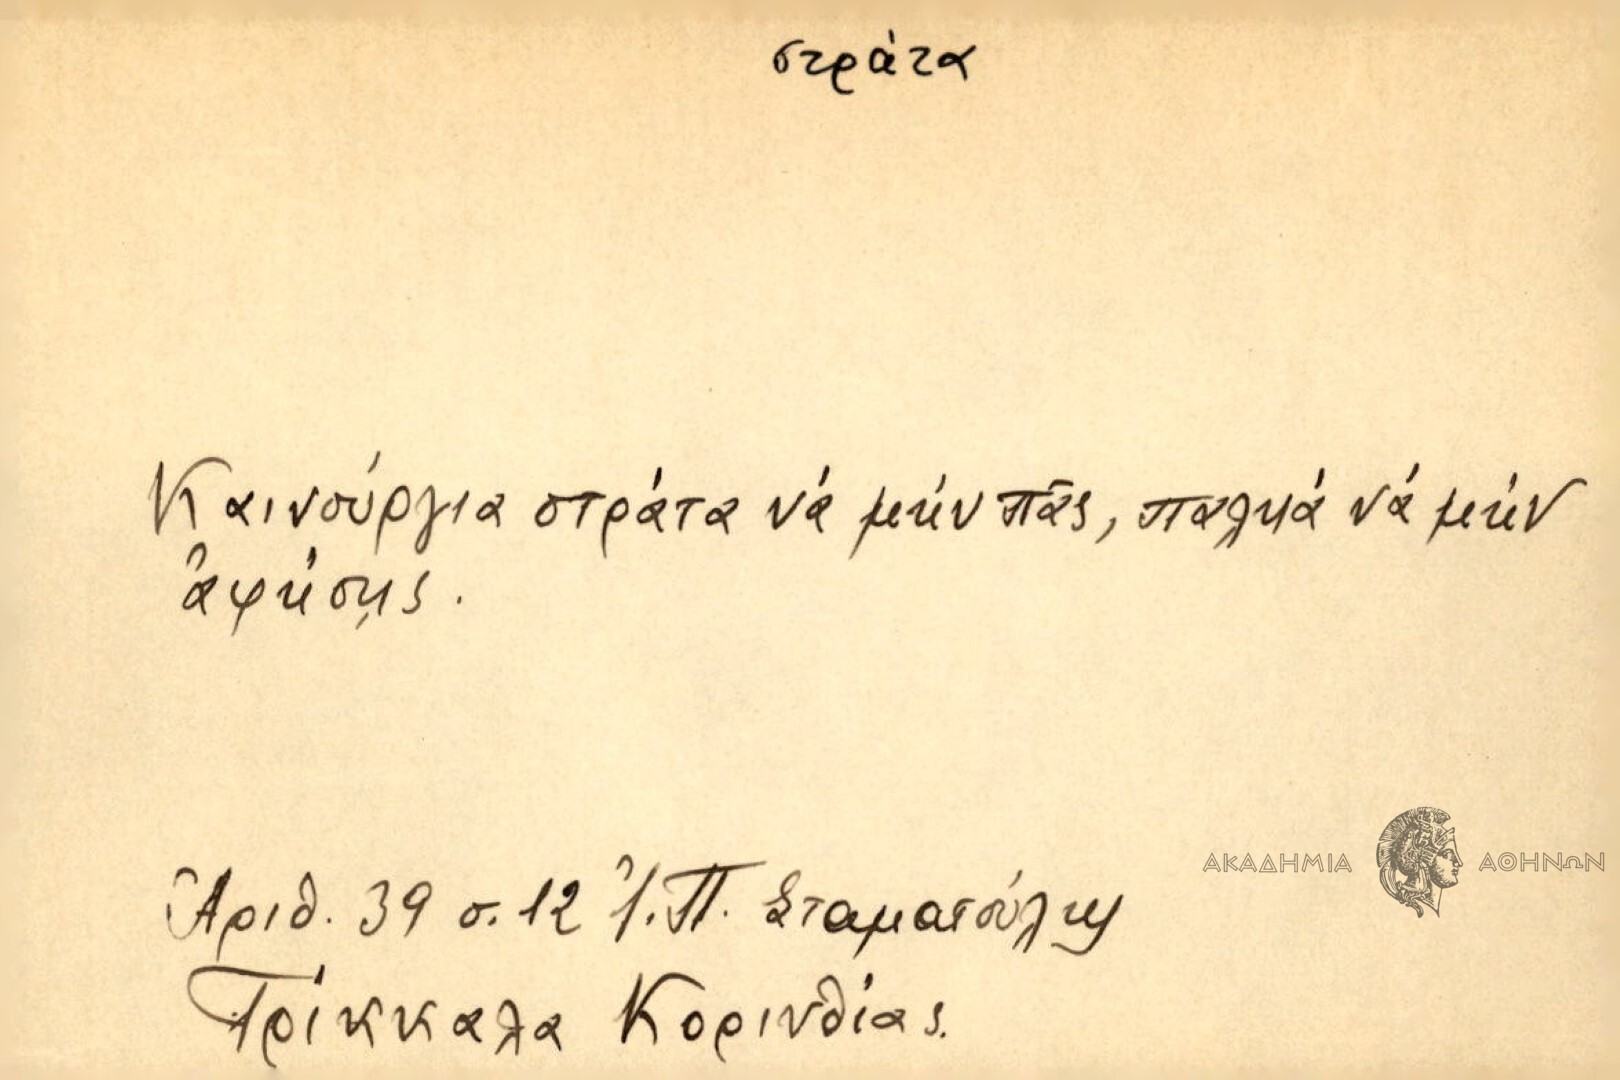 στράτα
Καινούργια στράτα νά μήν πᾶς, παληά νά μήν
ἀφήσῃς.
ΑΚΑΔΗΜΙΑ ΑΘΗΝΩΝ
Ἀριθ. 39 σ. 12 Ἰ. Π. Σταματούλης
Τρίκκαλα Κορινθίας.